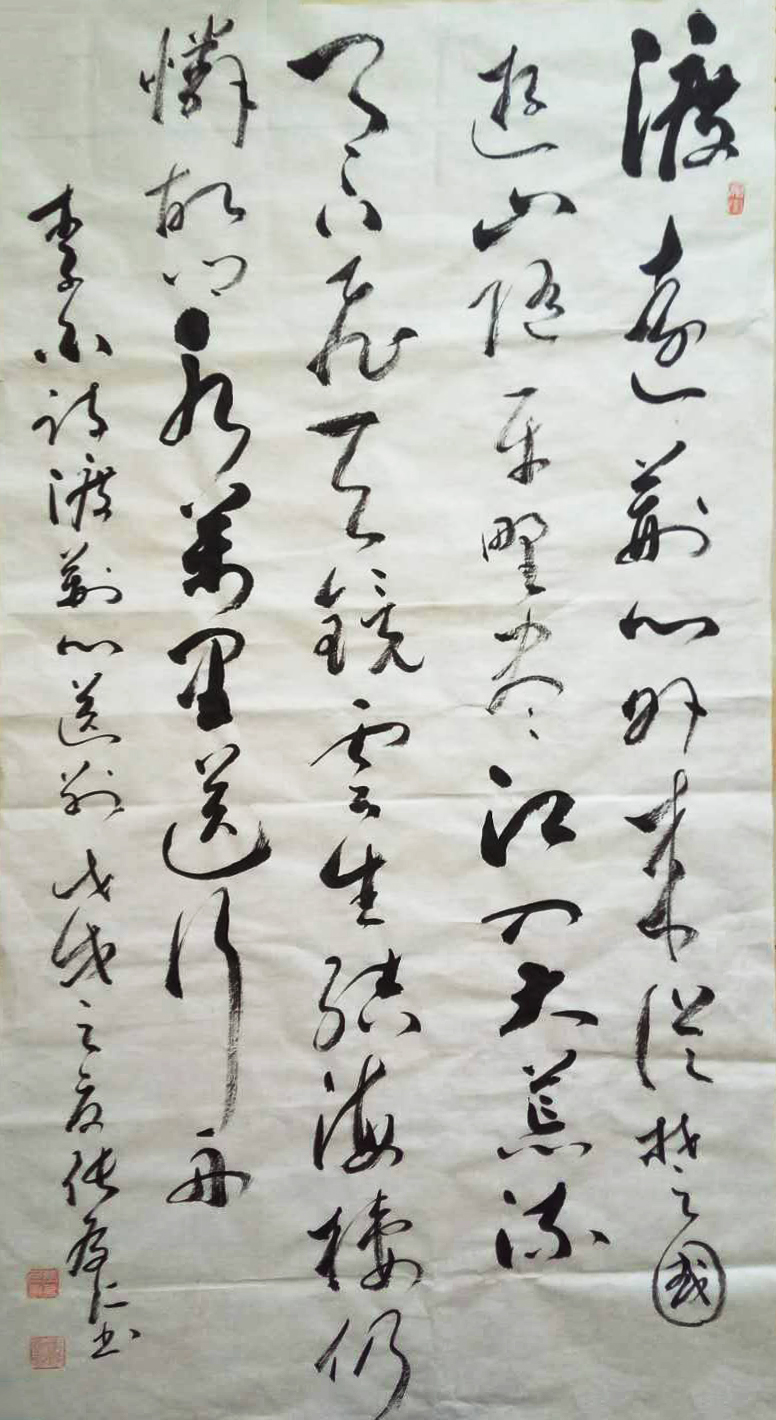 渡遠荊門外來從楚國
遊山隨平野尽江入大荒流
月下飛天鏡雲生結海樓仍
憐故鄉水萬里送行舟
李白詩渡荊門送別戊戌之夏張仁书